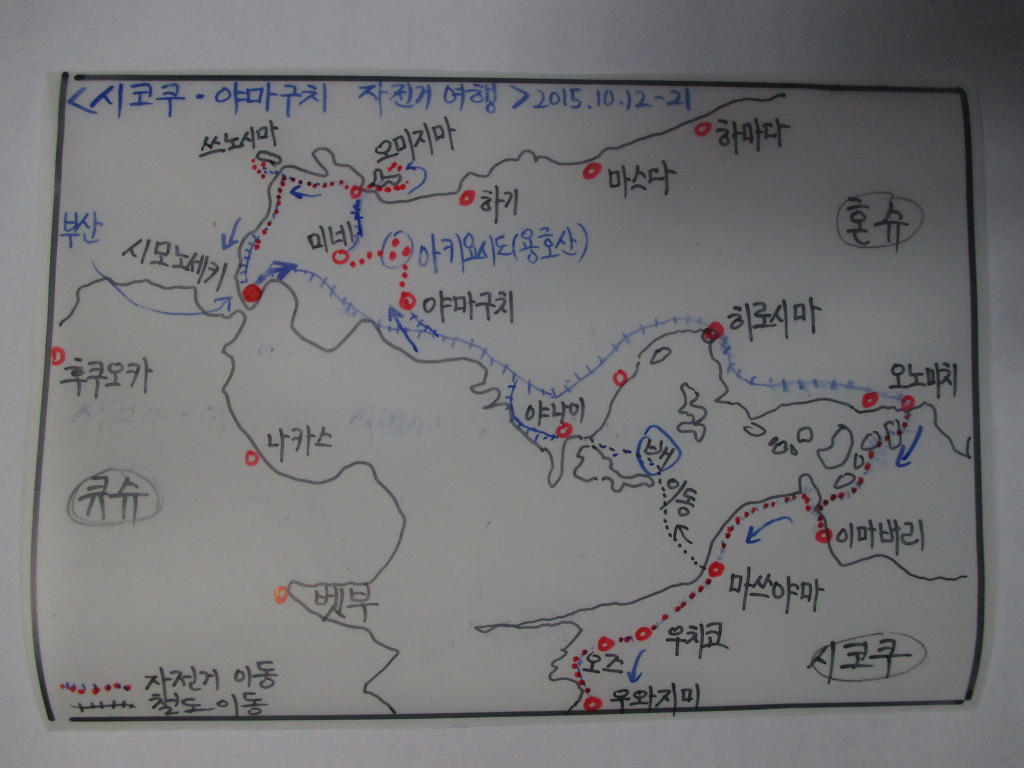 <시코쿠·야마구치 자전거 여행>2015.10.12-21
쓰노시마
오미지마
하마다
마스다
하기
혼슈
부산
시모노세키
미네
아키요시도(용호산)
야마구치
히로시마
후쿠오카
오노미치
야나이
나카스
배
이동
큐슈
이마바리
벳부
마쓰야마
우치코
오즈
시코쿠
우와지미
자전거 이동
철도 이동